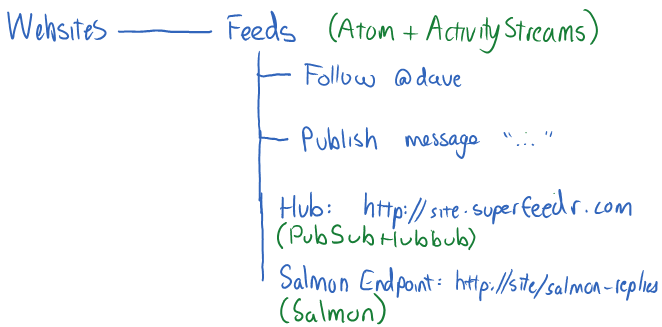 Websites Feeds (Atom + ActivityStreams)
Follow @dave
Publish message "..."
Hub: http://site.superfeedr.com
(PubSubHubbub)
Salmon Endpoint: http://site/salmon-replies
(Salmon)